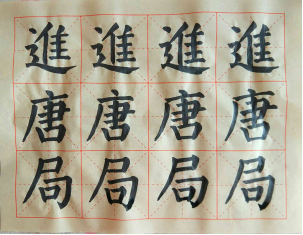 進進進進
唐唐唐唐
局局局局